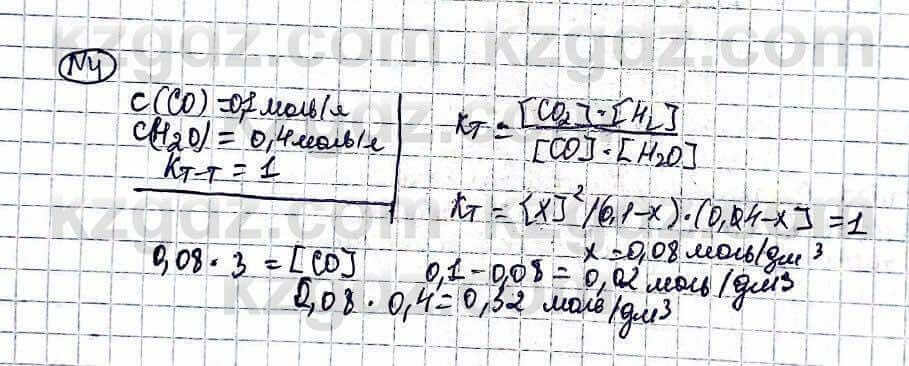 N4
C(CO) = 0,1 моль/л
C(H2O) = 0,4 моль/л
Kт-т = 1
Kт = [CO2]·[H2] / [CO]·[H2O]
Kт = [X]²/(0,1-x)·(0,4-x] = 1
x = 0,08 моль/дм³
0,08 · 3 = [CO]
0,1 - 0,08 = 0,02 моль/дм³
0,08 · 0,4 = 0,32 моль/дм³
kzgdz.com